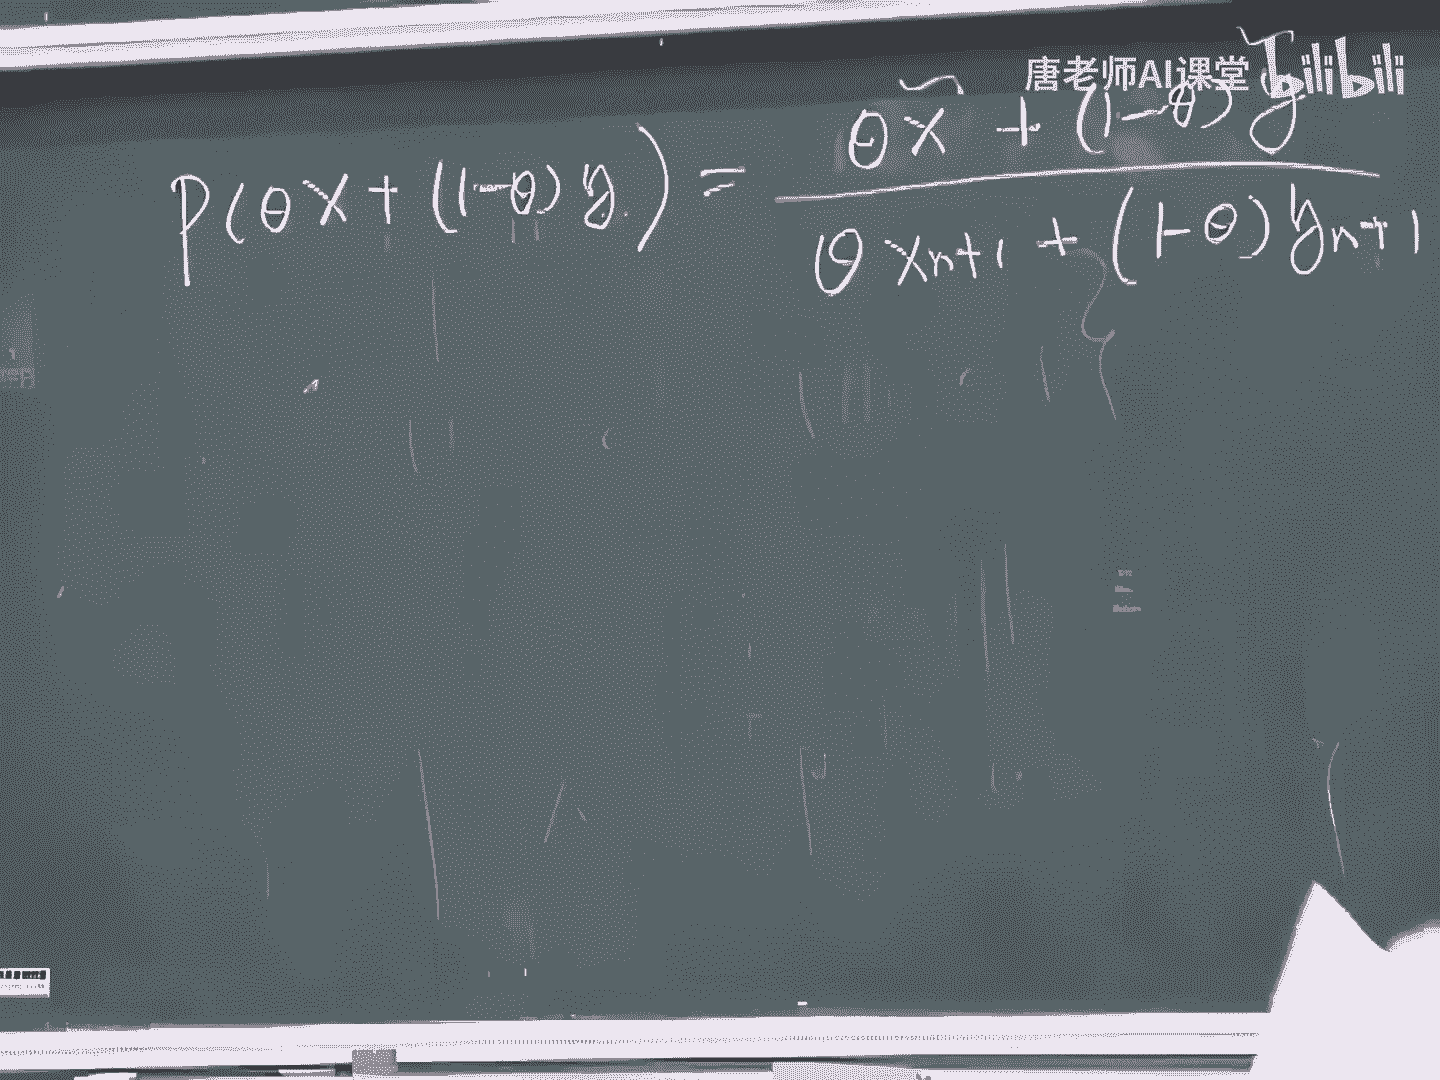 唐老师AI课堂 bilibili
P(θx + (1-θ)y) = \frac{θ\tilde{x} + (1-θ)\tilde{y}}{θx_{n+1} + (1-θ)y_{n+1}}